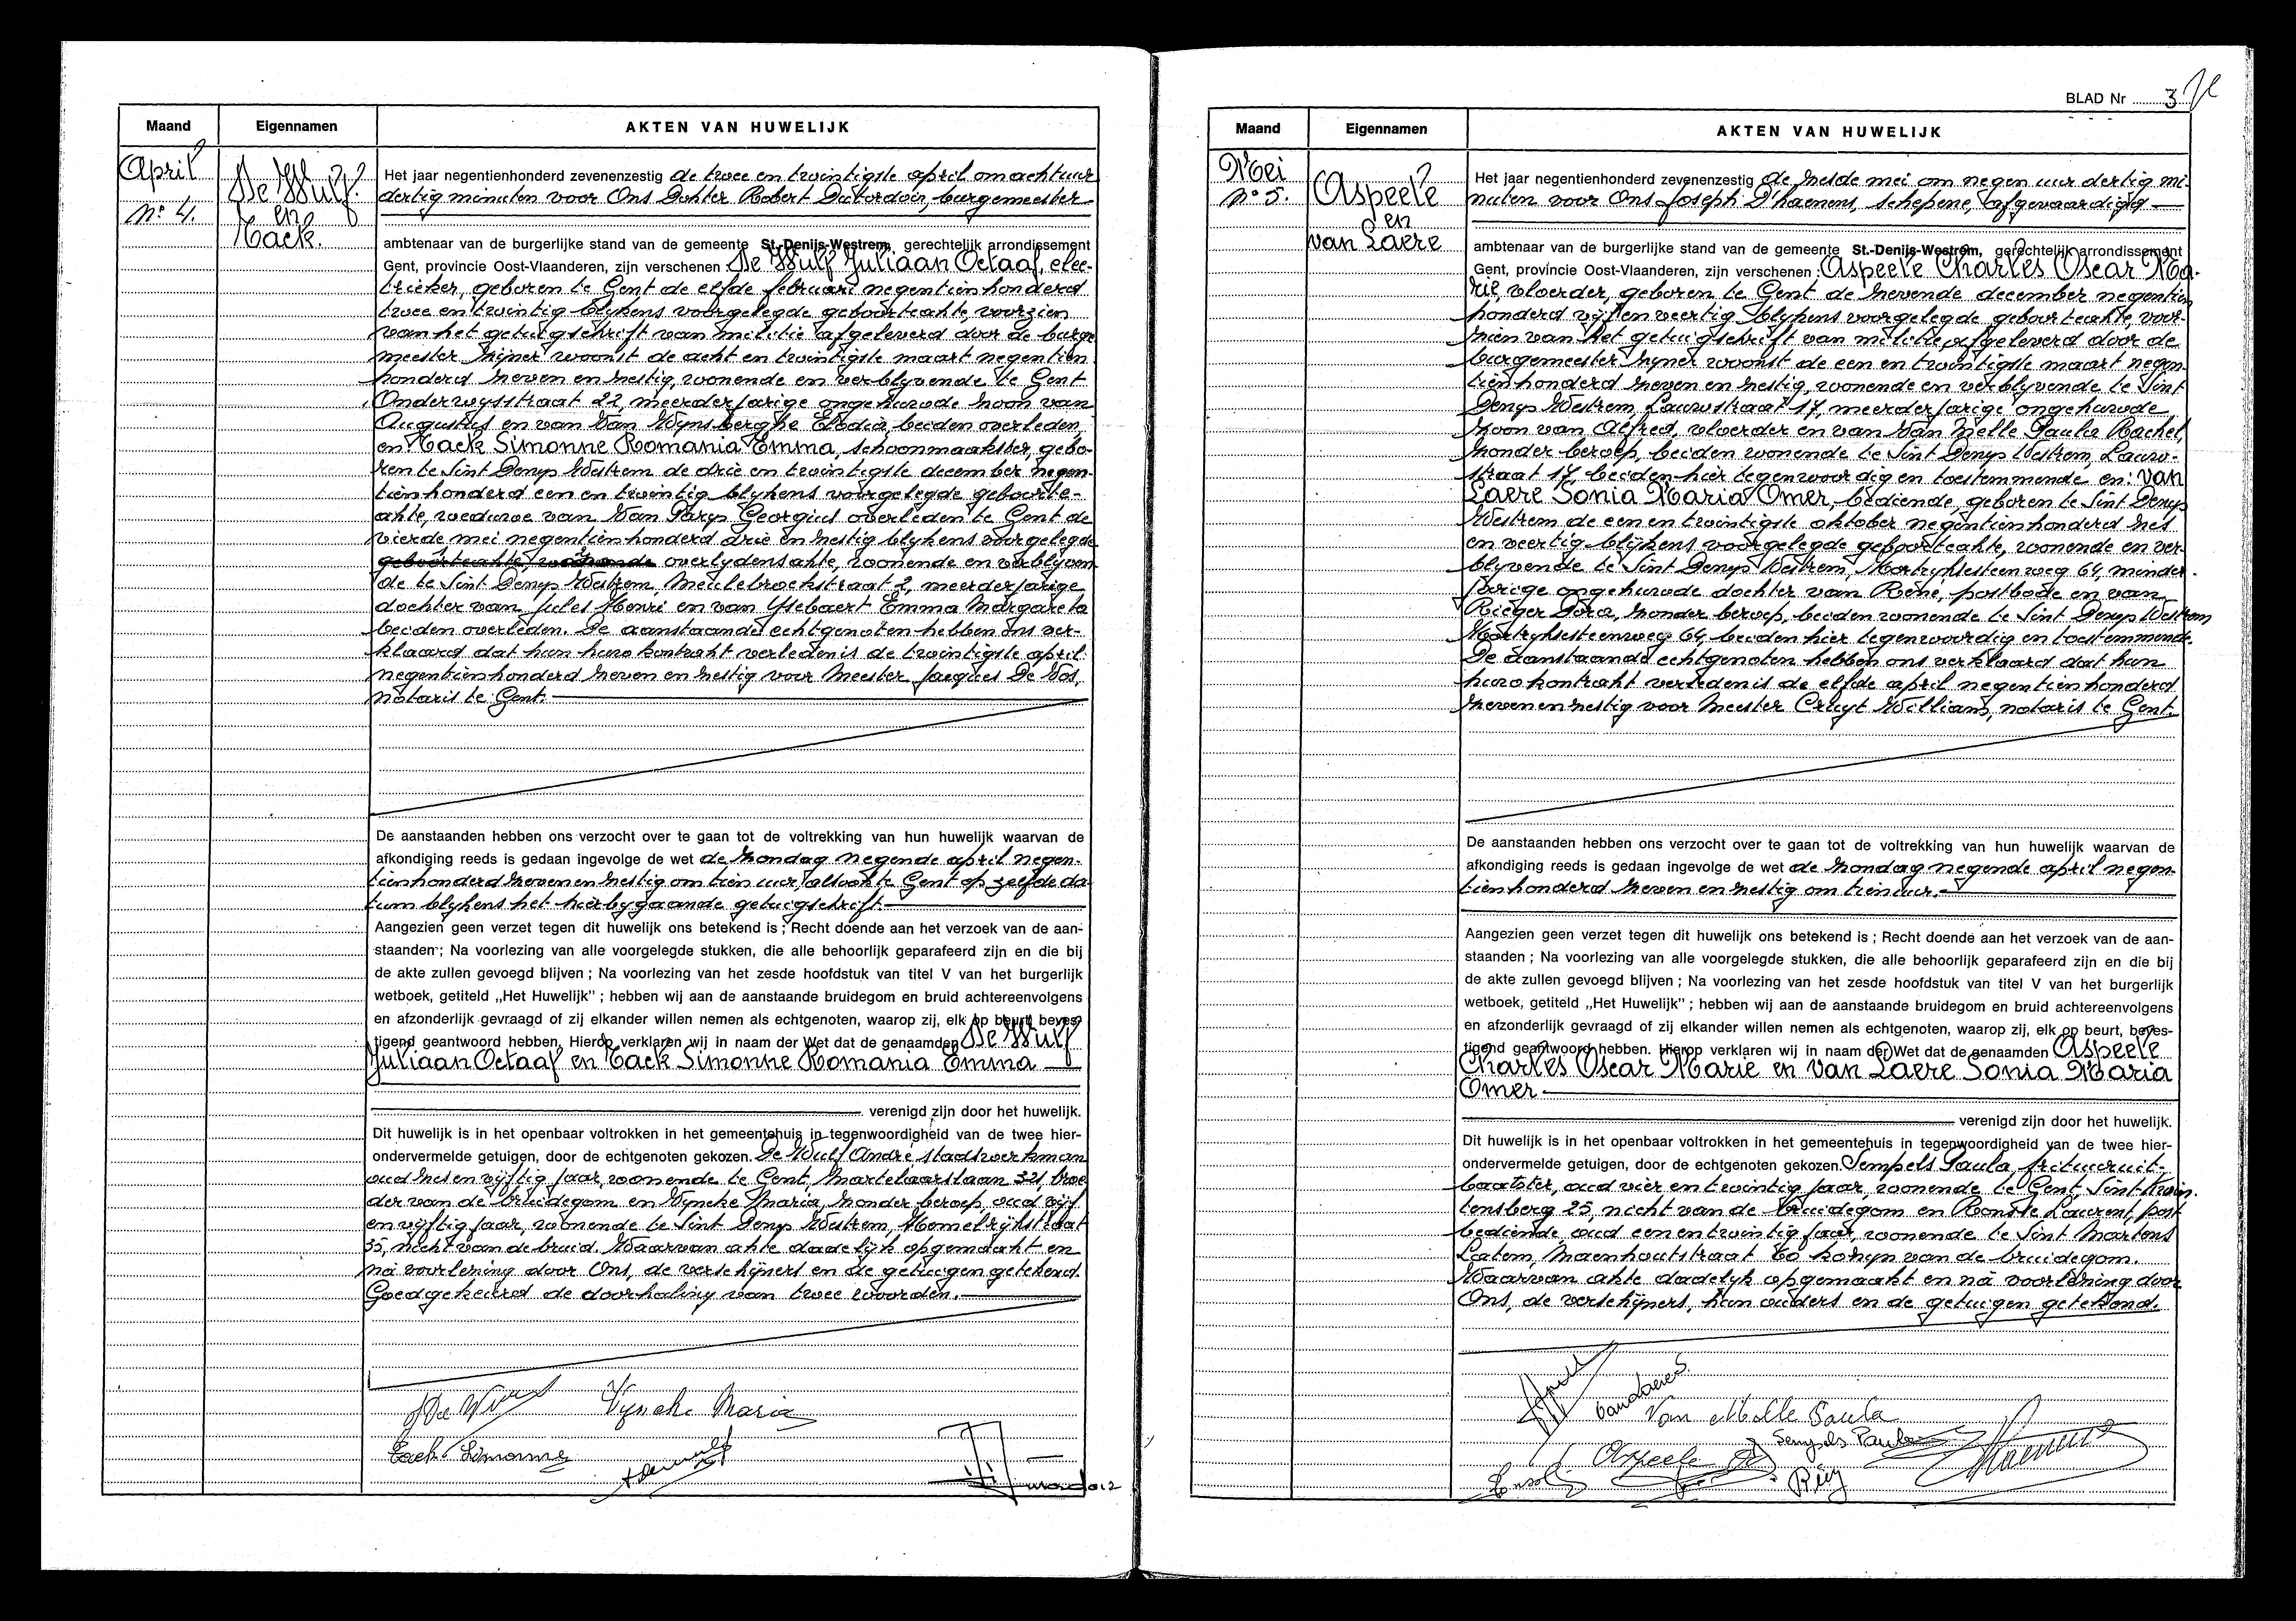 Maand
Eigennamen
AKTEN VAN HUWELIJK
April
N° 4.
De Wulf
en
Tack.
Het jaar negentienhonderd zevenenzestig de twee en twintigste april om acht uur
dertig minuten voor Ons Dokter Robert Dutordoir, burgemeester
ambtenaar van de burgerlijke stand van de gemeente St.-Denijs-Westrem, gerechtelijk arrondissement
Gent, provincie Oost-Vlaanderen, zijn verschenen : De Wulf Juliaan Octaaf, elec-
trieker, geboren te Gent de elfde februari negentienhonderd
twee en twintig blykens voorgelegde geboorteakte, voorzien
van het getuigschrift van militie afgeleverd door de burge
meester zijner woonst de acht en twintigste maart negentien
honderd zeven en zestig, wonende en verblyvende te Gent
Onderwysstraat 22, meerderjarige ongehuwde zoon van
Augustus en van Van Wynsberghe Elodia, beiden overleden
en Tack Simonne Romania Emma, schoonmaakster, gebo-
ren te Sint Denys Westrem de drie en twintigste december negen-
tienhonderd een en twintig blykens voorgelegde geboorte-
akte, weduwe van Van Parys Georgius overleden te Gent de
vierde mei negentienhonderd drie en zestig blykens voorgelegde
geboorteakte, wonende overlydensakte, wonende en verblyven
de te Sint Denys Westrem, Meulebroekstraat 2, meerderjarige
dochter van Jules Henri en van Ysebaert Emma Margareta
beiden overleden. De aanstaande echtgenoten hebben ons ver-
klaard dat hun huw kontrakt verleden is de twintigste april
negentienhonderd zeven en zestig voor Meester Jacques De Vos,
notaris te Gent.
De aanstaanden hebben ons verzocht over te gaan tot de voltrekking van hun huwelijk waarvan de
afkondiging reeds is gedaan ingevolge de wet de zondag negende april negen-
tienhonderd zeven en zestig om tien uur, alsook te Gent op zelfde da-
tum blykens het hierbygaande getuigschrift.
Aangezien geen verzet tegen dit huwelijk ons betekend is ; Recht doende aan het verzoek van de aan-
staanden ; Na voorlezing van alle voorgelegde stukken, die alle behoorlijk geparafeerd zijn en die bij
de akte zullen gevoegd blijven ; Na voorlezing van het zesde hoofdstuk van titel V van het burgerlijk
wetboek, getiteld „Het Huwelijk" ; hebben wij aan de aanstaande bruidegom en bruid achtereenvolgens
en afzonderlijk gevraagd of zij elkander willen nemen als echtgenoten, waarop zij, elk op beurt, beves-
tigend geantwoord hebben. Hierop verklaren wij in naam der Wet dat de genaamden De Wulf
Juliaan Octaaf en Tack Simonne Romania Emma
verenigd zijn door het huwelijk.
Dit huwelijk is in het openbaar voltrokken in het gemeentehuis in tegenwoordigheid van de twee hier-
ondervermelde getuigen, door de echtgenoten gekozen. De Wulf André stadswerkman
oud zes en vyftig jaar, wonende te Gent, Martelaarslaan 321, broe
der van de bruidegom en Vyncke Maria, zonder beroep, oud vyf
en vyftig jaar, wonende te Sint Denys Westrem, Hemelrykstraat
35, nicht van de bruid. Waarvan akte dadelyk opgemaakt en
na voorlezing door Ons, de verschijners en de getuigen getekend.
Goedgekeurd de doorhaling van twee woorden.
De Wulf
Vyncke Maria
Tack Simonne
BLAD Nr 3
Maand
Eigennamen
AKTEN VAN HUWELIJK
Mei
N° 5.
Aspeele
en
van Laere
Het jaar negentienhonderd zevenenzestig de zesde mei om negen uur dertig mi-
nuten voor Ons Joseph D'haenens, schepene, afgevaardigd
ambtenaar van de burgerlijke stand van de gemeente St.-Denijs-Westrem, gerechtelijk arrondissement
Gent, provincie Oost-Vlaanderen, zijn verschenen : Aspeele Charles Oscar Ma-
rie, vloerder, geboren te Gent de zevende december negentien
honderd vijf en veertig blykens voorgelegde geboorteakte, voor-
zien van het getuigschrift van militie afgeleverd door de
burgemeester zyner woonst de een en twintigste maart negen-
tienhonderd zeven en zestig, wonende en verblyvende te Sint
Denys Westrem, Lauwstraat 17, meerderjarige ongehuwde
zoon van Alfred, vloerder en van Van Melle Paula Rachel,
zonder beroep, beiden wonende te Sint Denys Westrem, Lauw-
straat 17, beiden hier tegenwoordig en toestemmende en: van
Laere Sonia Maria Omer, bediende, geboren te Sint Denys
Westrem de een en twintigste oktober negentienhonderd zes
en veertig blijkens voorgelegde geboorteakte, wonende en ver-
blyvende te Sint Denys Westrem, Kortryksesteenweg 64, minder-
jarige ongehuwde dochter van René, postbode en van
Rieger Dora, zonder beroep, beiden wonende te Sint Denys Westrem
Kortryksesteenweg 64, beiden hier tegenwoordig en toestemmende.
De aanstaande echtgenoten hebben ons verklaard dat hun
huw kontrakt verleden is de elfde april negentienhonderd
zeven en zestig voor Meester Cruyt William, notaris te Gent.
De aanstaanden hebben ons verzocht over te gaan tot de voltrekking van hun huwelijk waarvan de
afkondiging reeds is gedaan ingevolge de wet de zondag negende april negen-
tienhonderd zeven en zestig om tien uur.
Aangezien geen verzet tegen dit huwelijk ons betekend is ; Recht doende aan het verzoek van de aan-
staanden ; Na voorlezing van alle voorgelegde stukken, die alle behoorlijk geparafeerd zijn en die bij
de akte zullen gevoegd blijven ; Na voorlezing van het zesde hoofdstuk van titel V van het burgerlijk
wetboek, getiteld „Het Huwelijk" ; hebben wij aan de aanstaande bruidegom en bruid achtereenvolgens
en afzonderlijk gevraagd of zij elkander willen nemen als echtgenoten, waarop zij, elk op beurt, beves-
tigend geantwoord hebben. Hierop verklaren wij in naam der Wet dat de genaamden Aspeele
Charles Oscar Marie en van Laere Sonia Maria
Omer
verenigd zijn door het huwelijk.
Dit huwelijk is in het openbaar voltrokken in het gemeentehuis in tegenwoordigheid van de twee hier-
ondervermelde getuigen, door de echtgenoten gekozen. Sempels Paula, frituuruit-
baatster, oud vier en twintig jaar, wonende te Gent, Sint Kwin-
tensberg 25, nicht van de bruidegom en Ronsse Laurent, post
bediende, oud een en twintig jaar, wonende te Sint Martens
Latem, Maenhoutstraat kozyn van de bruidegom.
Waarvan akte dadelyk opgemaakt en na voorlezing door
Ons, de verschijners, hun ouders en de getuigen getekend.
Van Melle Paula
Sempels Paula
Aspeele